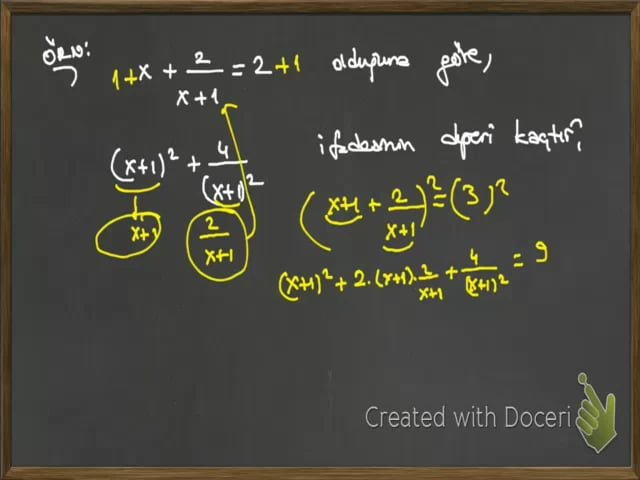 ÖRN:
1+x + 2/(x+1) = 2 +1 olduğuna göre,
(x+1)² + 4/(x+1)² ifadesinin değeri kaçtır?
x+1 2/(x+1)
(x+1 + 2/(x+1))² = (3)²
(x+1)² + 2·(x+1)·2/(x+1) + 4/(x+1)² = 9
Created with Doceri